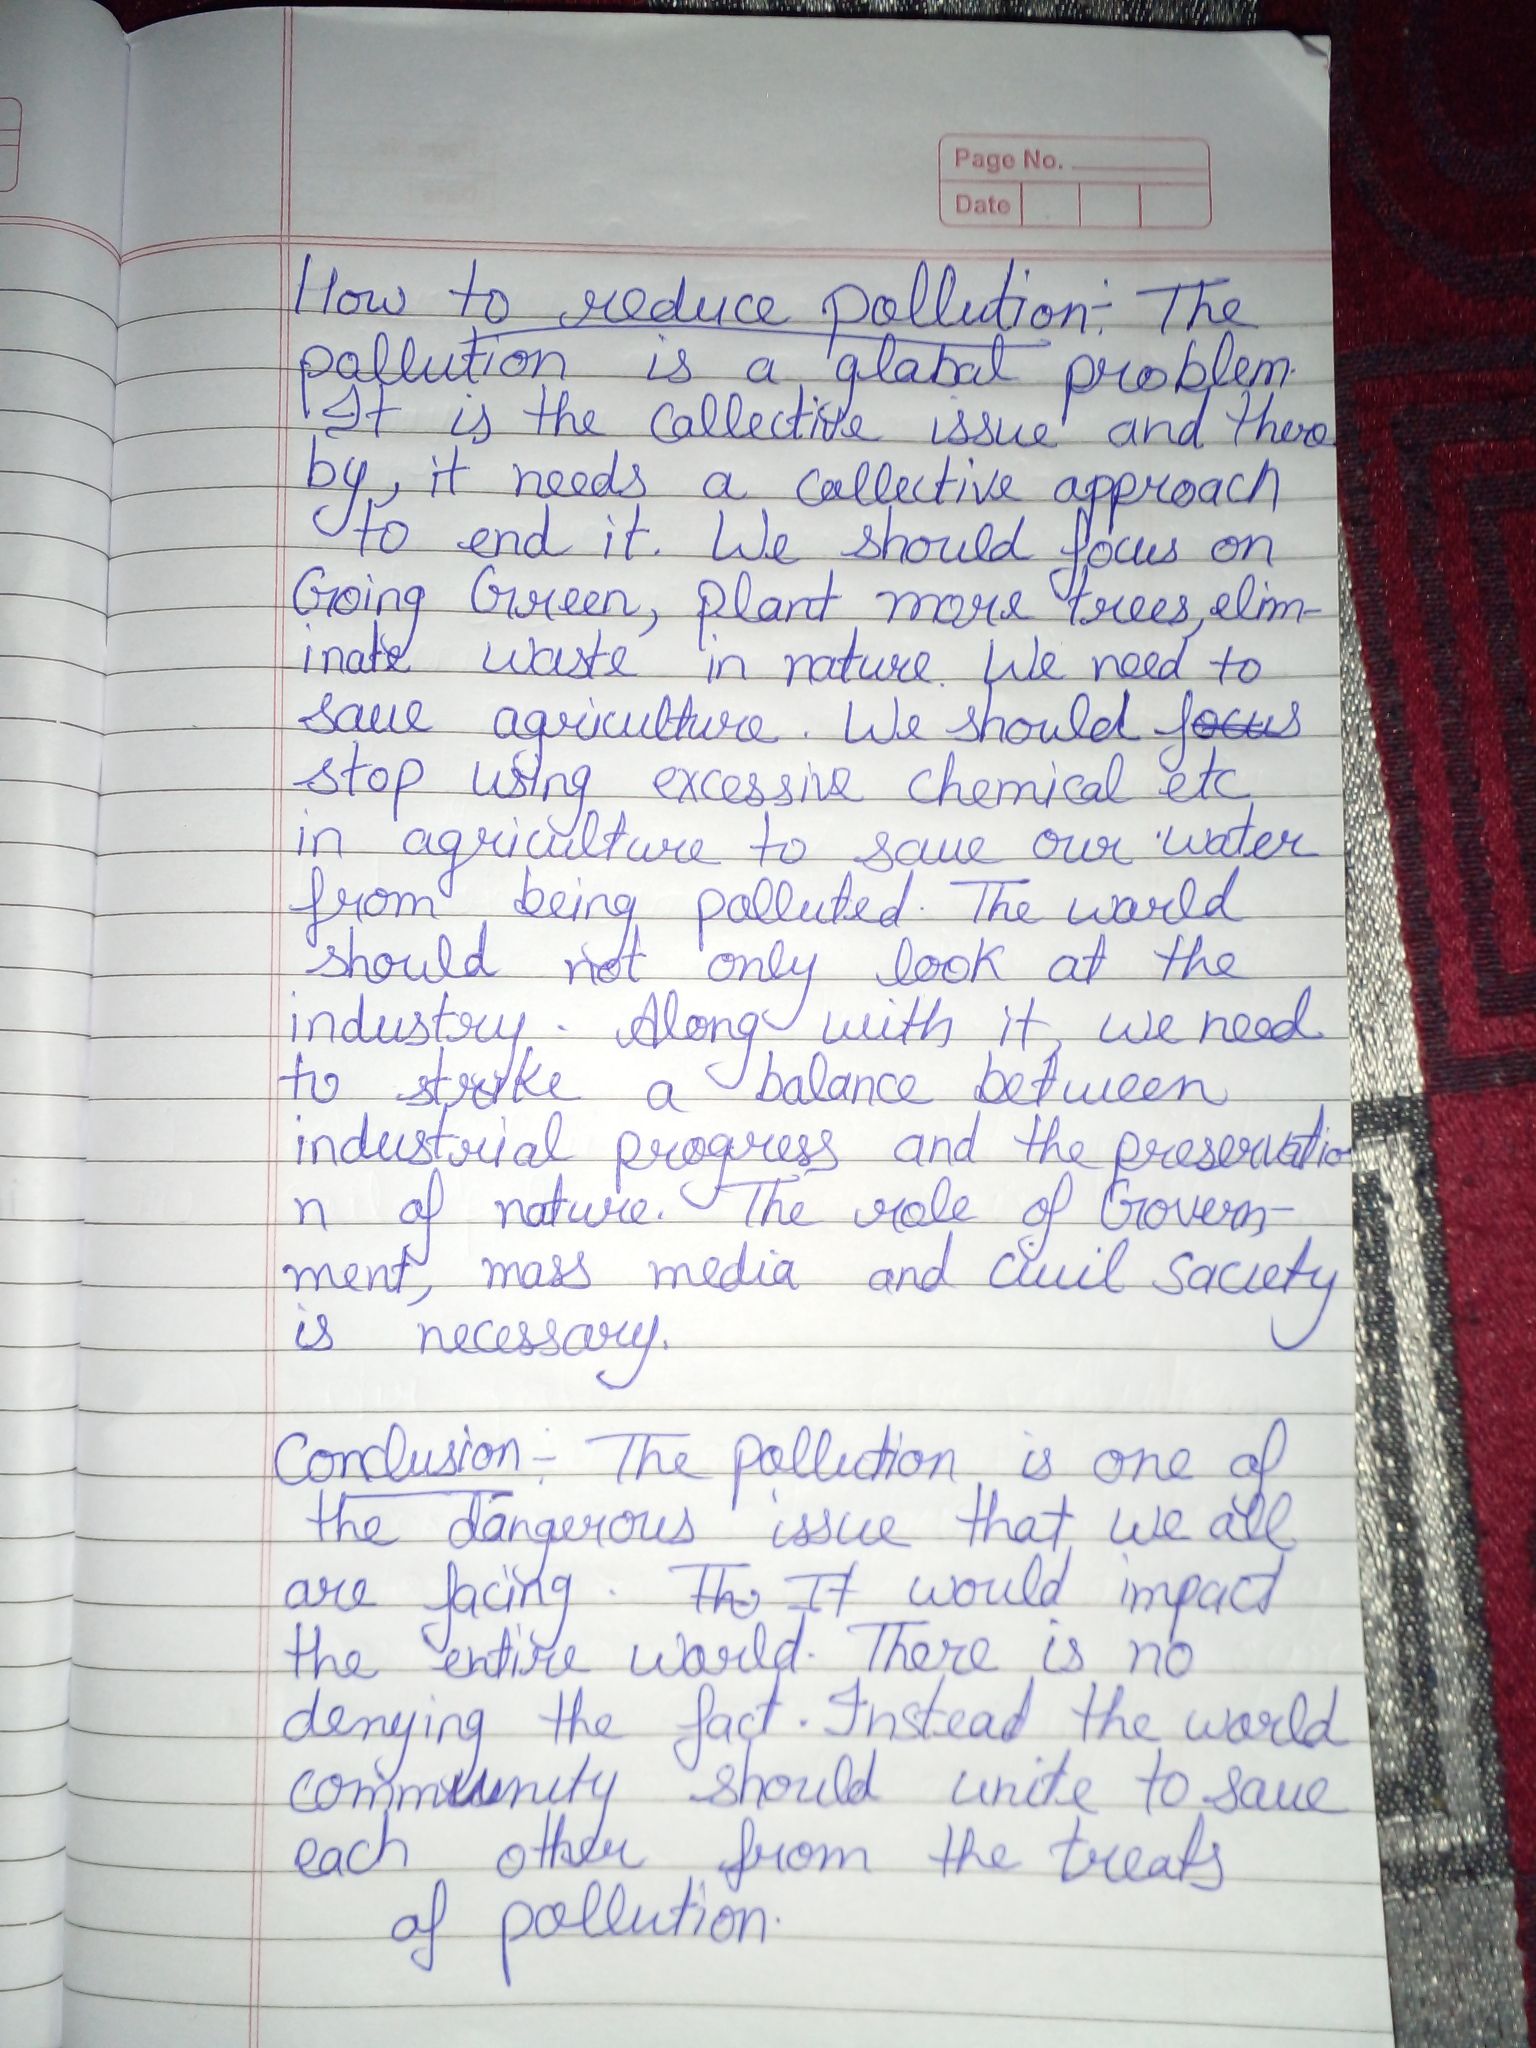 Page No.
Date
How to reduce pollution:- The
pollution is a global problem.
It is the collective issue and there
by, it needs a collective approach
to end it. We should focus on
Going Green, plant more trees, elim-
inate waste in nature. We need to
save agriculture. We should focus
stop using excessive chemical etc
in agriculture to save our water
from being polluted. The world
should not only look at the
industry. Along with it, we need
to strike a balance between
industrial progress and the preservatio
n of nature. The role of Govern-
ment, mass media and civil society
is necessary.
Conclusion:- The pollution is one of
the dangerous issue that we all
are facing. The It would impact
the entire world. There is no
denying the fact. Instead the world
community should unite to save
each other from the treats
of pollution.